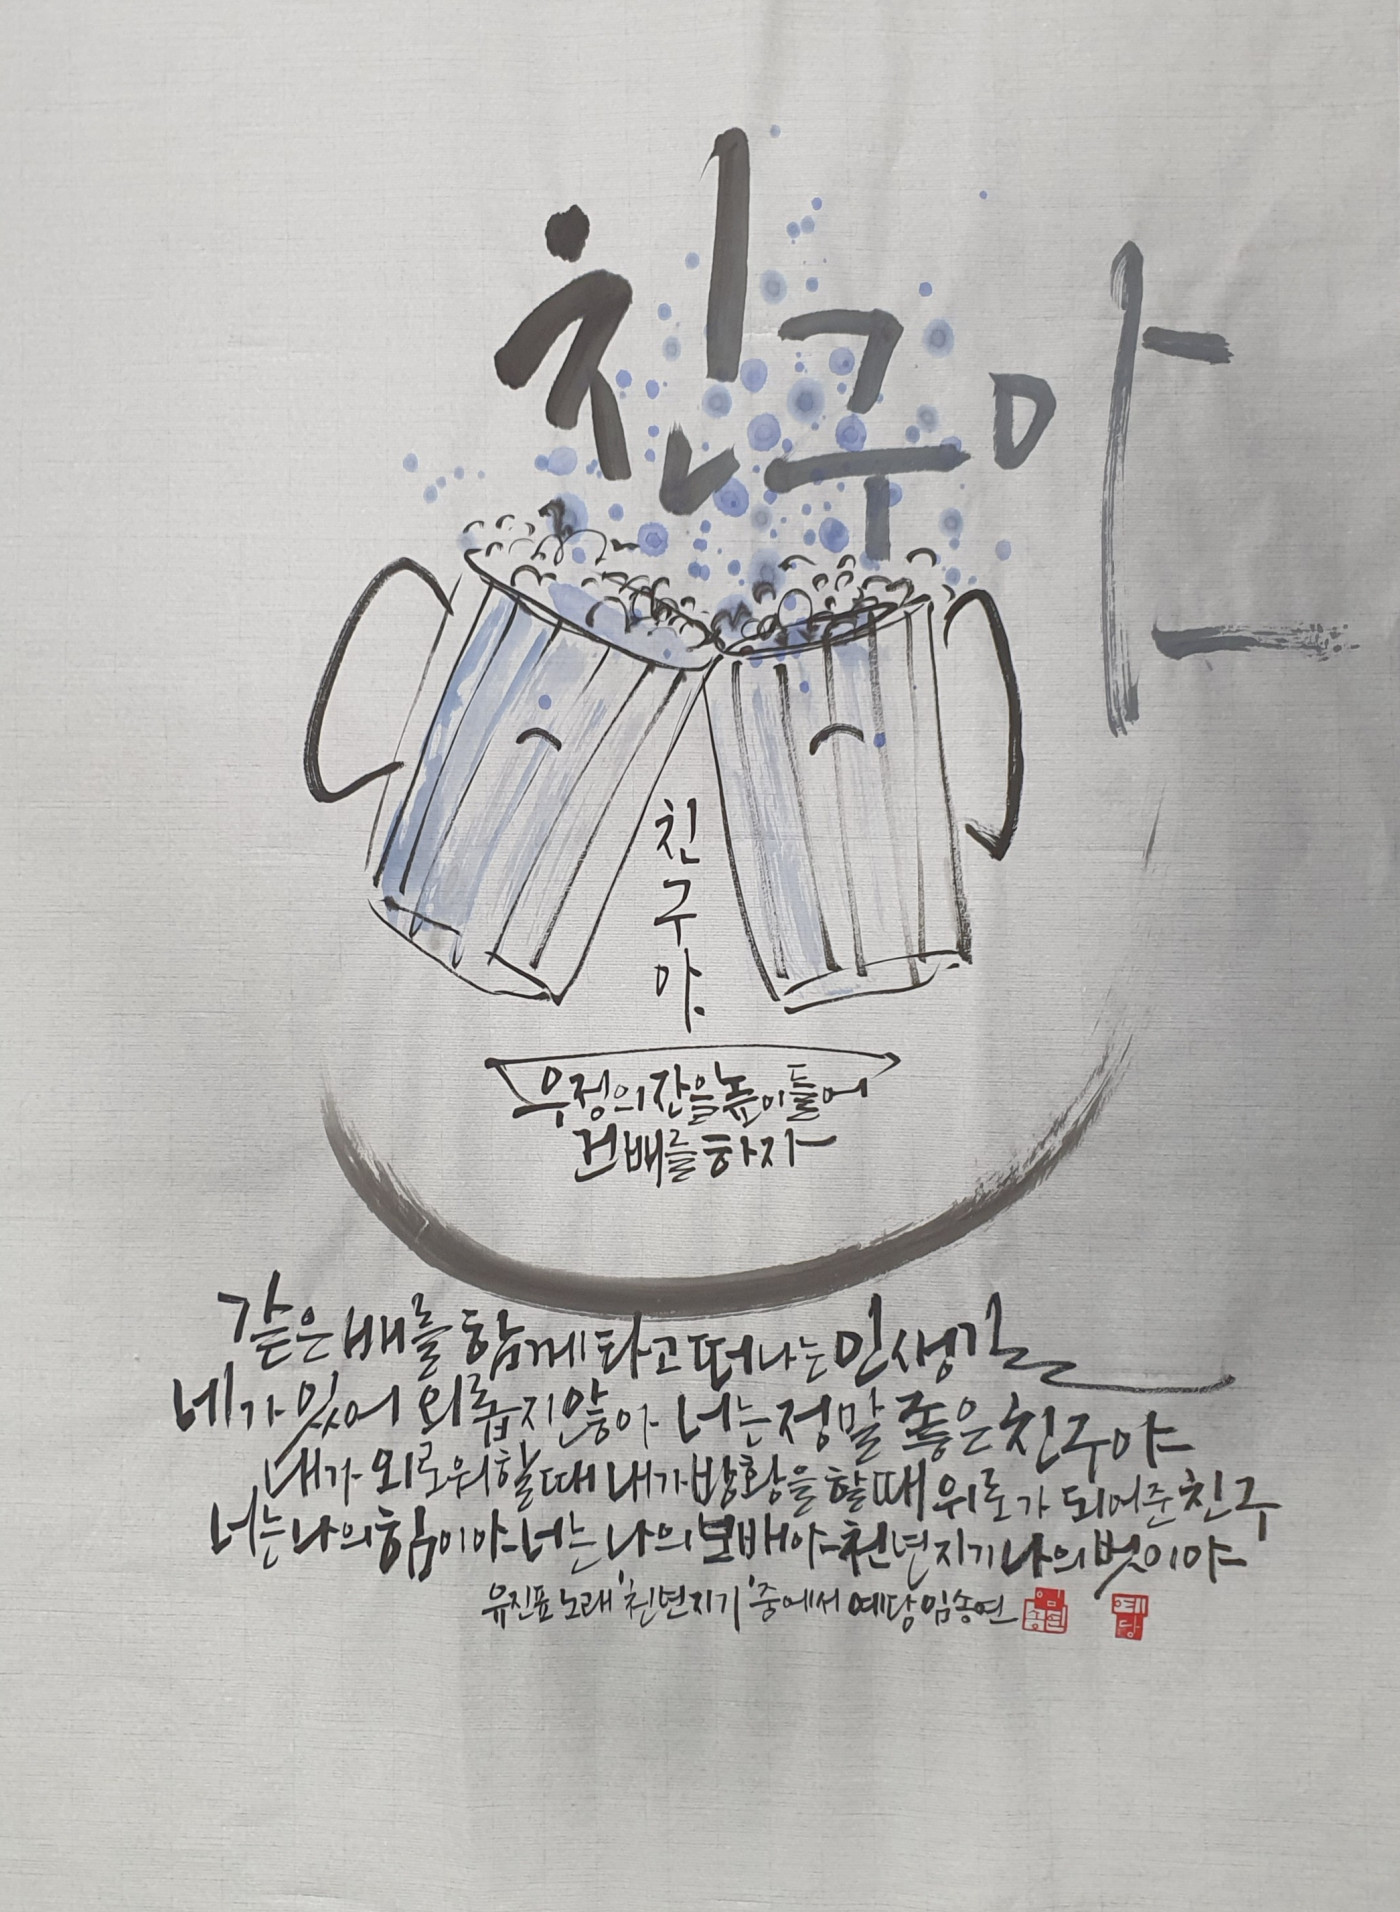 친구야
친
구
야
우정의 잔을 높이 들어
건배를 하자
같은 배를 함께 타고 떠나는 인생길
네가 있어 외롭지 않아 너는 정말 좋은 친구야
내가 외로워 할때 내가 방황을 할때 위로가 되어준 친구
너는 나의 힘이야 너는 나의 보배야 천년지기 나의 벗이야
유진표 노래 '천년지기' 중에서 예당 임송연
임송연
예당